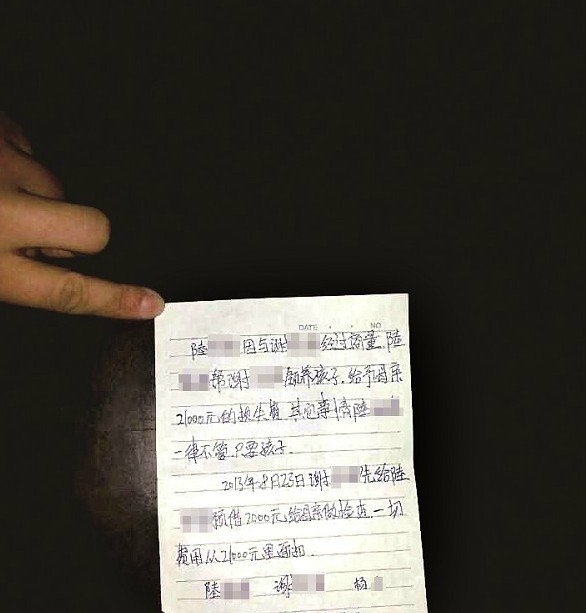 DATE · · NO
陆 因与谢 经过商量,陆
帮谢 领养孩子,给予母亲
21000元的损失费,其它事情陆
一律不管,只要孩子.
2013年8月23日谢 先给陆
预借2000元,给母亲做检查,一切
费用从21000元里面扣.
陆 谢 杨